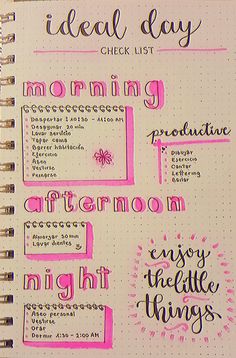 ideal day
CHECK LIST
morning
Despertar 10:30 - 11:00 AM
Desayunar 20 min
Lavar servicio
Tapar cama
Barrer habitación
Ejercicio
Aseo
Vestirse
Peinarse
productive
Dibujar
Ejercicio
Cantar
Lettering
Bailar
afternoon
Almorzar 30 min
Lavar dientes
enjoy
the little
things
night
Aseo personal
Vestirse
Orar
Dormir 1:30 - 2:00 AM